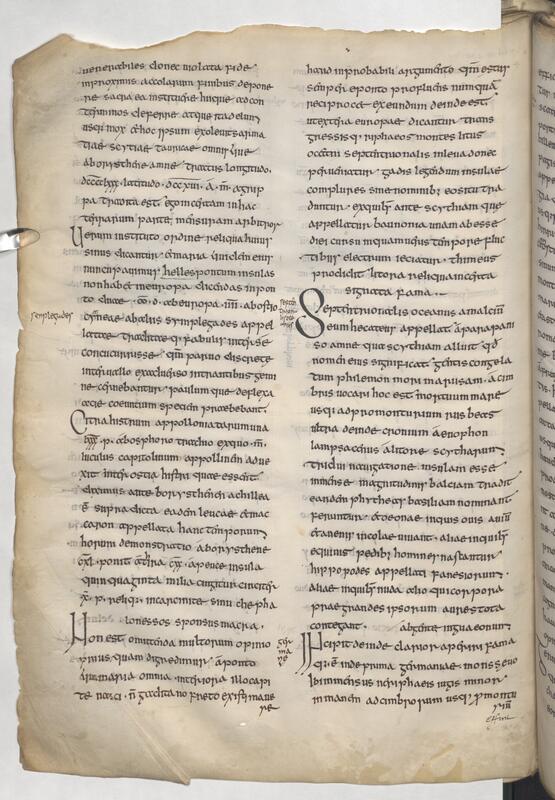 venerabiles donec violata fide
inproximis accolarum finibus depone
re sacra ea instituere hucque ad con
terminos deferre atque ita delum
usq; mox & hoc ipsum exoleuisse a sima
tiae scytiae tauricae omniq;
aborysthene amne tractus longitudo
dcccclxxx latitudo dccxvii a m agrip
pa tradita est ego incertam in hac
terrarum parte mensuram arbitror
Verum instituto ordine reliqua huius
sinus dicantur & maria quidem eius
nuncupavimus hellespontum insulas
non habet in europa dicendas in pon
to duae ab europa ab ostio
cyaneae ab aliis symplegades appel
latae traditaeq; fabulis inter se
concucurrisse qm parvo discretae
intervallo ex adverso intrantibus gemi
nae cernebantur paulumque deflexa
acie coeuntium speciem praebebant
symplegades
Citra histrum apolloniatarum una
lxxx p a bosphoro thracio ex qua m
luculus capitolinum appollinem adve
xit inter ostia histri quae essent
diximus ante borysthenen achillea
est supra dicta eadem leucae & mac
caron appellata hanc temporum
horum demonstratio a borysthene
cxl ponit a tyra cxx a peuce insula
quinquaginta milia cingitur circiter
x p reliq; in carcinite sinu chepha
lonessos sponsus macra
Non est omittenda multorum opinio
prius quam digredimur a ponto
qui maria omnia interiora illo capi
te nasci non gaditano freto existimave
re
haud inprobabili argumento qm estus
semper e ponto profluens numqua
reciproce exeundum deinde est
ut extera europae dicantur trans
gressisq; riphaeos montes litus
oceani septentrionalis in leva donec
perveniatur gadis legendum insulae
complures sine nominibus eo situ tra
duntur ex quibus ante scythiam que
appellatur baunonia unam abesse
diei cursu in quam veris tempore fluc
tibus electrum ieciatur thimeus
prodidit litora reliqua incerta
signata fama
Septentrionalis oceanus amalcium
eum hecateus appellat a parapani
so amne qua scythiam alluit qd
nomen eius significat gentis congela
tum philemon morimarusam a cim
bris vocari hoc est mortuum mare
usq; ad promonturium rusbeas
ultra deinde cronium xenophon
lampsacenus a litore scytharum
tridui navigatione insulam esse
immense magnitudinis balciam tradit
eandem phytheas basiliam nominant
feruntur & oeonae in quis ovis avium
& avenis incolae vivant aliae in quibus
equinis pedibus homines nascantur
hippopodes appellati fanesiorum
aliae in quibus nuda alio qui corpora
praegrandes ipsorum aures tota
contegant ab gente inguaeonum
ger
ma
ne
Incipit deinde clarior aperiri fama
que est inde prima germaniae mons sevo
ibi inmensus nec riphaeis iugis minor
inmanem ad cimbrorum usq; promontu
rium